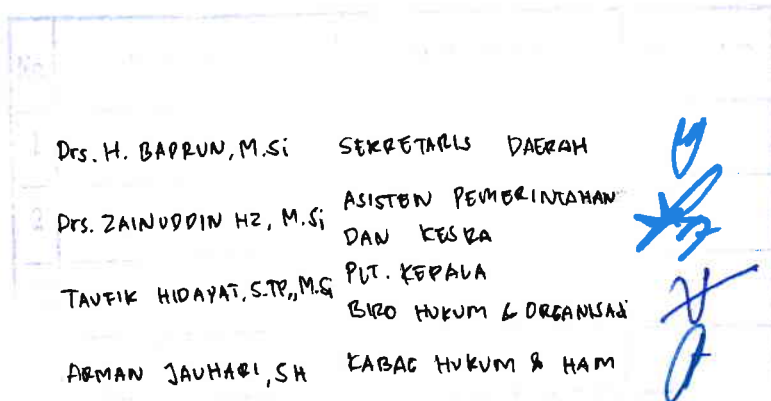 Drs. H. BAPRUN, M.Si SEKRETARIS DAERAH
Drs. ZAINUDDIN HZ, M.Si ASISTEN PEMERINTAHAN
DAN KESRA
TAUFIK HIDAYAT, S.TP., M.Si PLT. KEPALA
BIRO HUKUM & ORGANISASI
ARMAN JAUHARI, SH KABAG HUKUM & HAM